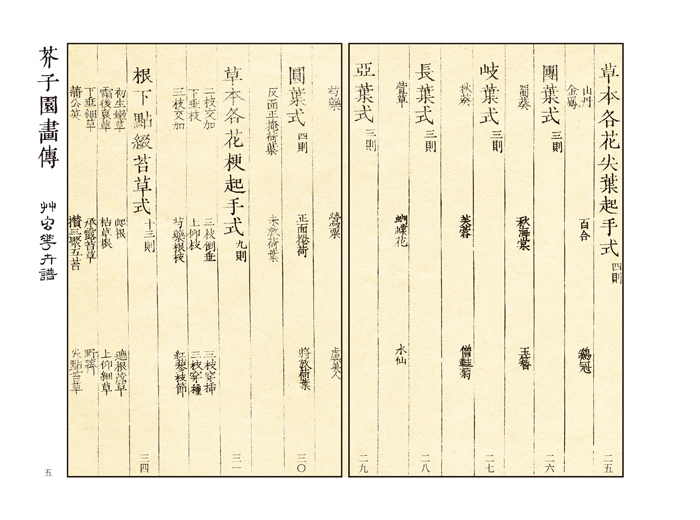 草本各花尖葉起手式 四則 二五
山丹 百合 鷄冠
金罌
團葉式 三則 二六
蜀葵 秋海棠 玉簪
岐葉式 三則 二七
秋葵 芙蓉 僧鞋菊
長葉式 三則 二八
萱草 蝴蝶花 水仙
亞葉式 三則 二九
芍藥 鶯粟 虞美人
圓葉式 四則 三〇
正面捲荷 將放荷葉
反面正掩荷葉 未放荷葉
草本各花梗起手式 九則 三一
二枝交加 三枝倒垂 三枝穿插
下垂枝 上仰枝
三枝交加 芍藥根枝
根下點綴苔草式 十三則 三四
初生嫩草
霜後衰草 枯草根 上仰細草
下垂細草 承露苔草 野薺
蒲公英 攢三聚五苔 尖點苔草
芥子園畫傳
艸虫花卉譜
五